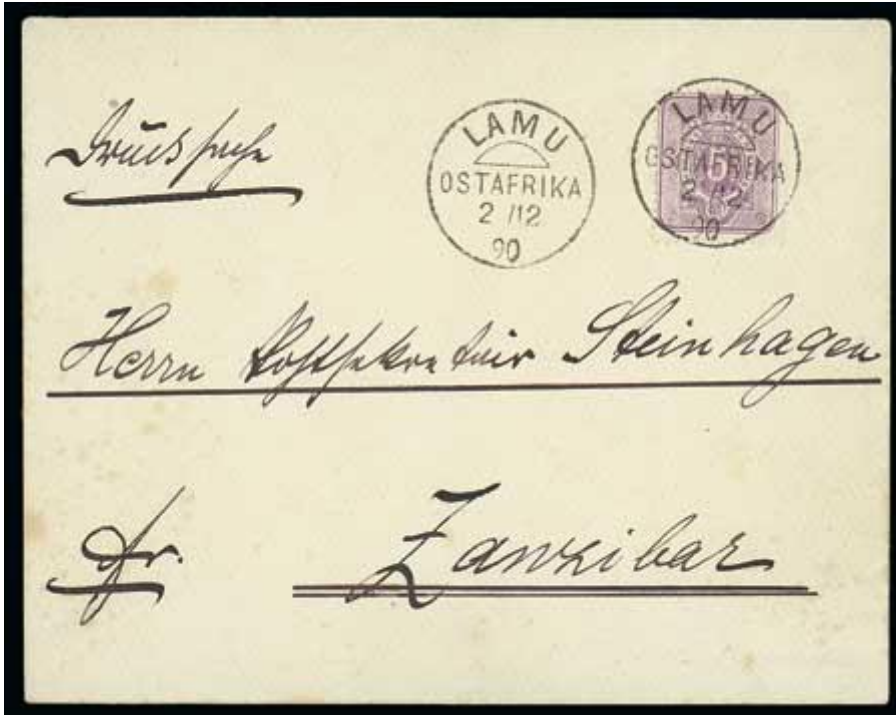 Drucksache
LAMU
OSTAFRIKA
2 /12
90
LAMU
OSTAFRIKA
5
2 /12
90
Herrn Postsekretair Steinhagen
fr.
Zanzibar